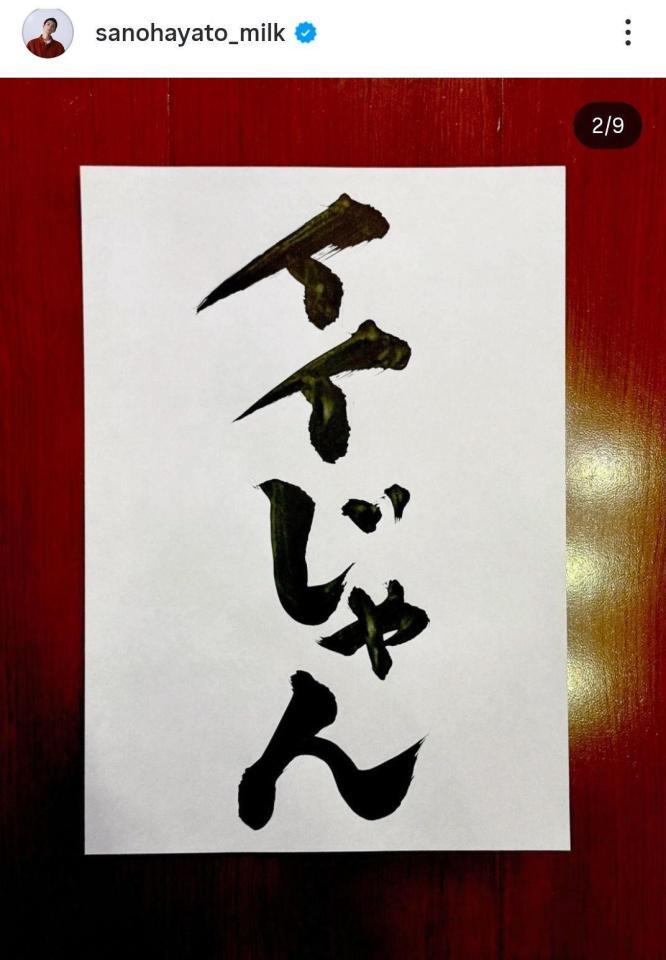 sanohayato_milk
2/9
イイじゃん